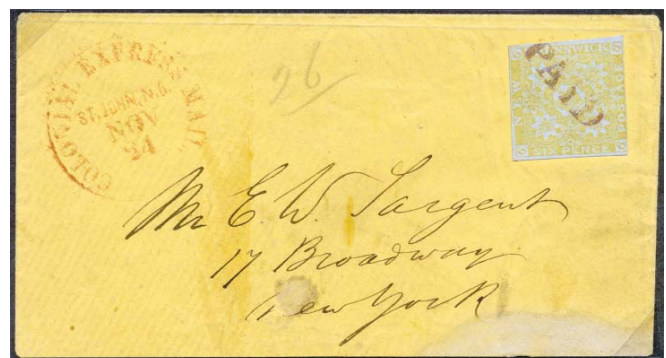 COLONIAL EXPRESS MAIL.
ST. JOHN, N.B.
NOV
24
26
NEW BRUNSWICK POSTAGE
SIX PENCE
PAID
Mr E. W. Sargent
17 Broadway
New York